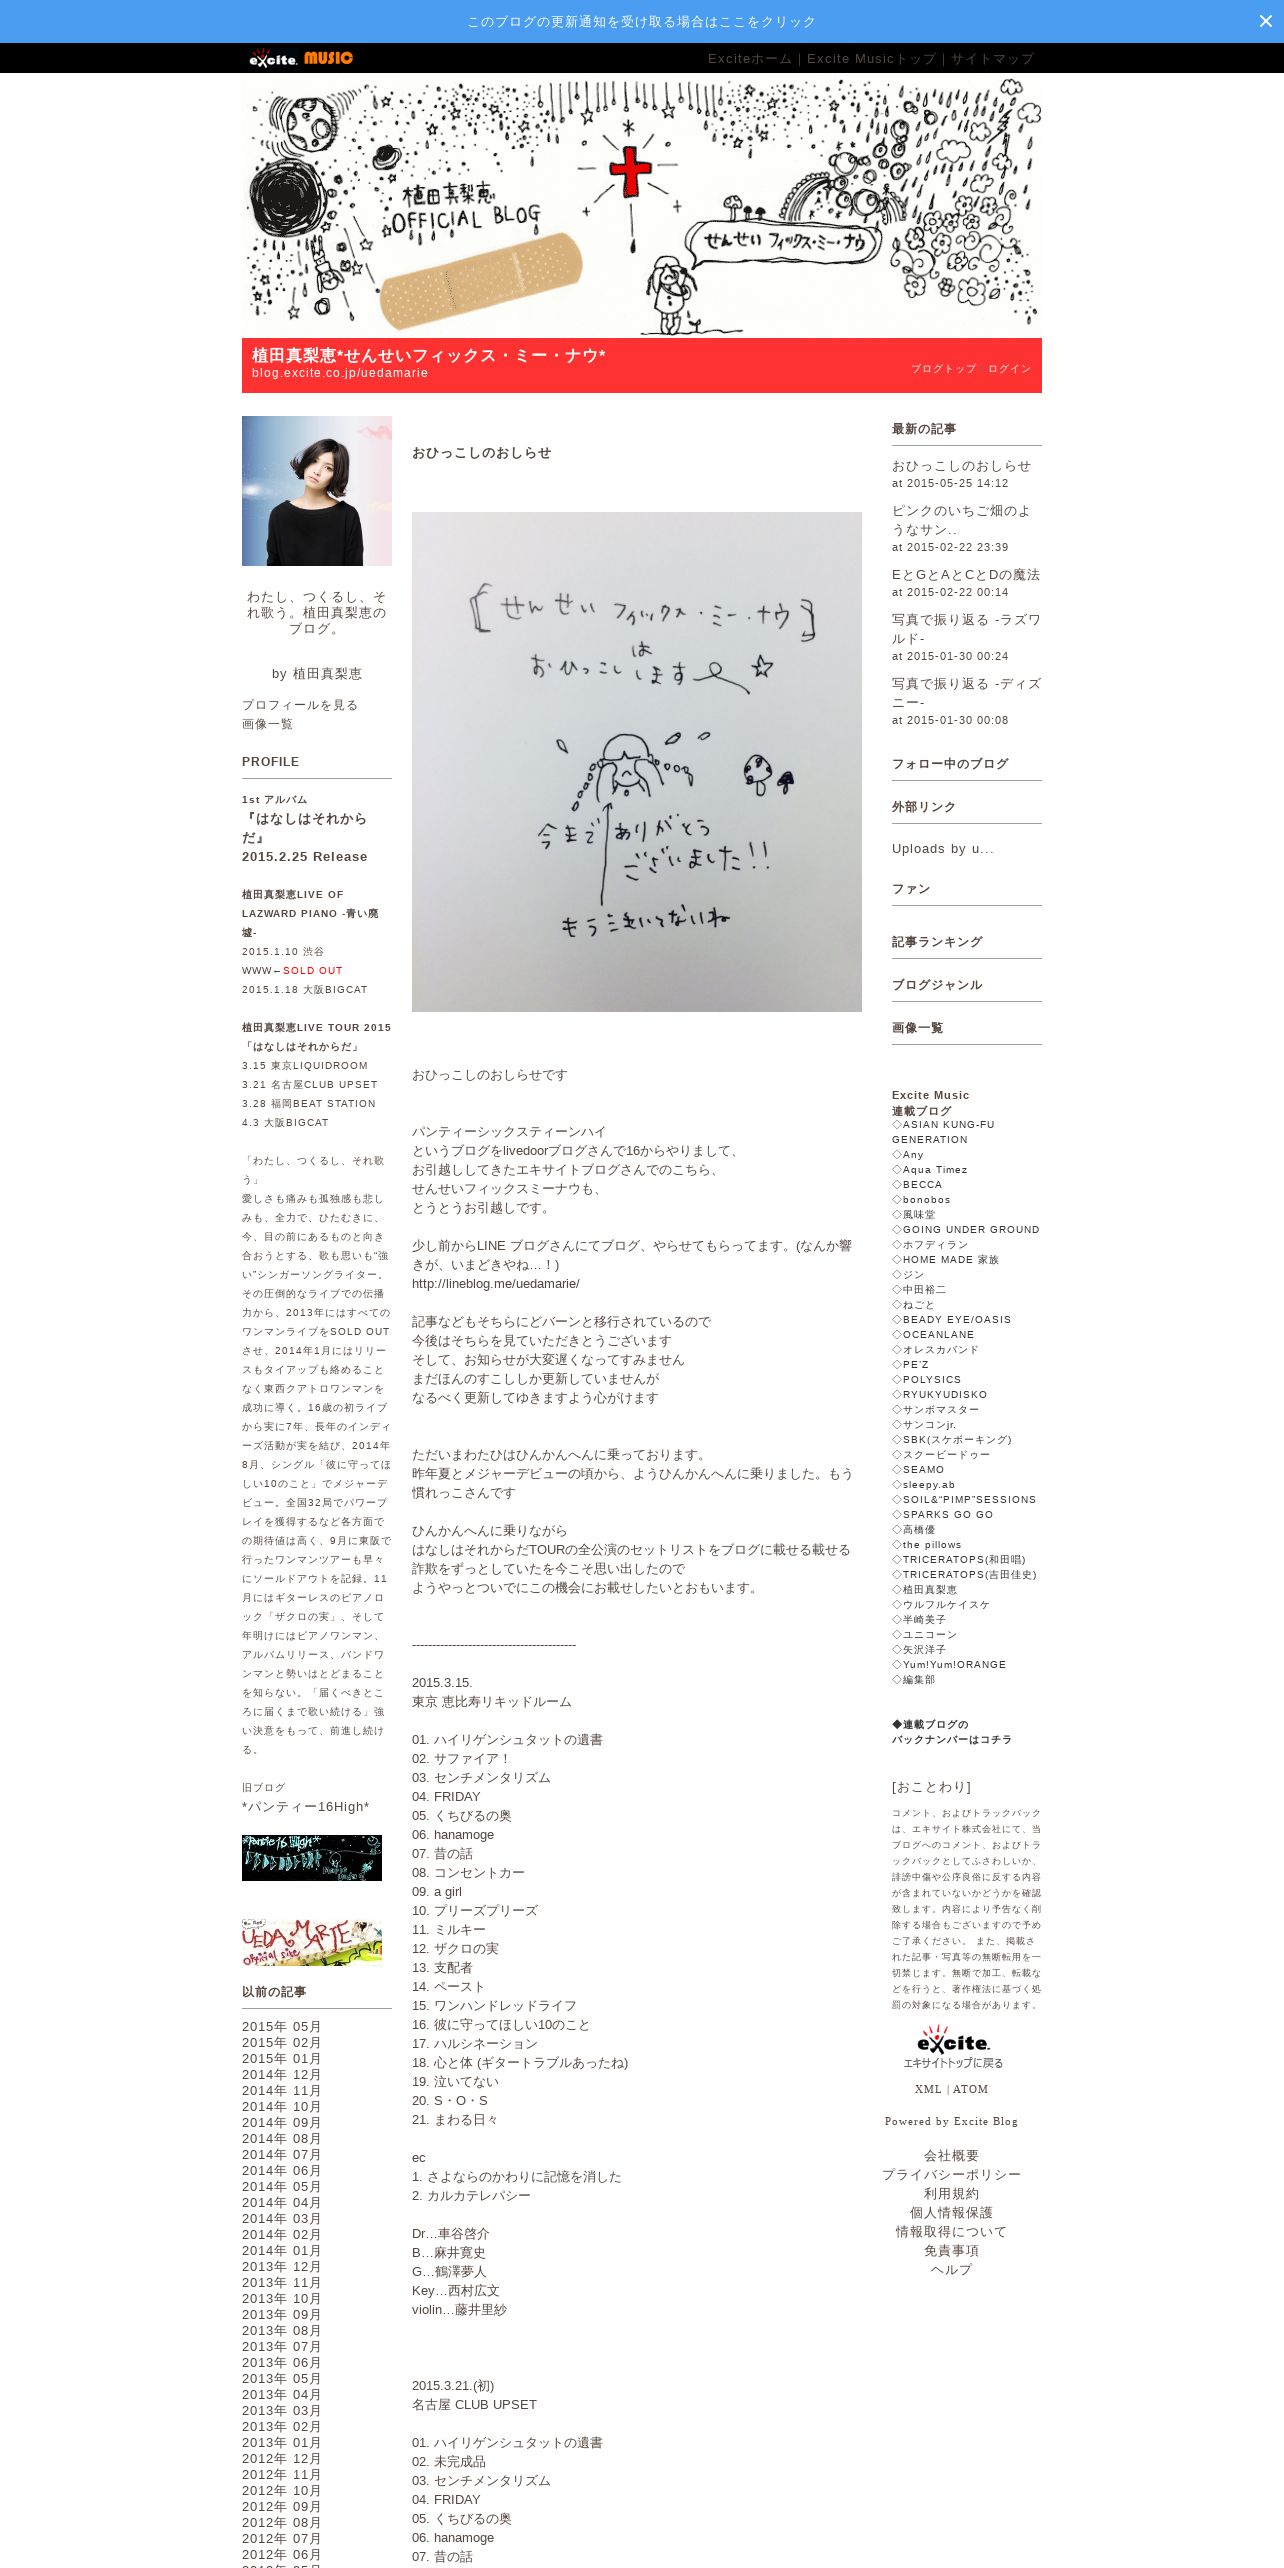 このブログの更新通知を受け取る場合はここをクリック
excite. MUSIC
Exciteホーム | Excite Musicトップ | サイトマップ
植田真梨恵
OFFICIAL BLOG
せんせい フィックス・ミー・ナウ
植田真梨恵*せんせいフィックス・ミー・ナウ*
blog.excite.co.jp/uedamarie
ブログトップ ログイン
わたし、つくるし、そ
れ歌う。植田真梨恵の
ブログ。
by 植田真梨恵
プロフィールを見る
画像一覧
PROFILE
1st アルバム
『はなしはそれから
だ』
2015.2.25 Release
植田真梨恵LIVE OF
LAZWARD PIANO -青い廃
墟-
2015.1.10 渋谷
WWW←SOLD OUT
2015.1.18 大阪BIGCAT
植田真梨恵LIVE TOUR 2015
「はなしはそれからだ」
3.15 東京LIQUIDROOM
3.21 名古屋CLUB UPSET
3.28 福岡BEAT STATION
4.3 大阪BIGCAT
「わたし、つくるし、それ歌
う」
愛しさも痛みも孤独感も悲し
みも、全力で、ひたむきに、
今、目の前にあるものと向き
合おうとする、歌も思いも“強
い”シンガーソングライター。
その圧倒的なライブでの伝播
力から、2013年にはすべての
ワンマンライブをSOLD OUT
させ、2014年1月にはリリー
スもタイアップも絡めること
なく東西クアトロワンマンを
成功に導く。16歳の初ライブ
から実に7年、長年のインディ
ーズ活動が実を結び、2014年
8月、シングル「彼に守ってほ
しい10のこと」でメジャーデ
ビュー。全国32局でパワープ
レイを獲得するなど各方面で
の期待値は高く、9月に東阪で
行ったワンマンツアーも早々
にソールドアウトを記録。11
月にはギターレスのピアノロ
ック「ザクロの実」、そして
年明けにはピアノワンマン、
アルバムリリース、バンドワ
ンマンと勢いはとどまること
を知らない。「届くべきとこ
ろに届くまで歌い続ける」強
い決意をもって、前進し続け
る。
旧ブログ
*パンティー16High*
UEDA MARIE
Official Site
以前の記事
2015年 05月
2015年 02月
2015年 01月
2014年 12月
2014年 11月
2014年 10月
2014年 09月
2014年 08月
2014年 07月
2014年 06月
2014年 05月
2014年 04月
2014年 03月
2014年 02月
2014年 01月
2013年 12月
2013年 11月
2013年 10月
2013年 09月
2013年 08月
2013年 07月
2013年 06月
2013年 05月
2013年 04月
2013年 03月
2013年 02月
2013年 01月
2012年 12月
2012年 11月
2012年 10月
2012年 09月
2012年 08月
2012年 07月
2012年 06月
おひっこしのおしらせ
[せんせい フィックス・ミー・ナウ]
は
おひっこしします
今まで ありがとう
ございました!!
もう泣いてないね
おひっこしのおしらせです
パンティーシックスティーンハイ
というブログをlivedoorブログさんで16からやりまして、
お引越ししてきたエキサイトブログさんでのこちら、
せんせいフィックスミーナウも、
とうとうお引越しです。
少し前からLINE ブログさんにてブログ、やらせてもらってます。(なんか響
きが、いまどきやね…！)
http://lineblog.me/uedamarie/
記事などもそちらにどバーンと移行されているので
今後はそちらを見ていただきとうございます
そして、お知らせが大変遅くなってすみません
まだほんのすこししか更新していませんが
なるべく更新してゆきますよう心がけます
ただいまわたひはひんかんへんに乗っております。
昨年夏とメジャーデビューの頃から、ようひんかんへんに乗りました。もう
慣れっこさんです
ひんかんへんに乗りながら
はなしはそれからだTOURの全公演のセットリストをブログに載せる載せる
詐欺をずっとしていたを今こそ思い出したので
ようやっとついでにこの機会にお載せしたいとおもいます。
-----------------------------------------
2015.3.15.
東京 恵比寿リキッドルーム
01. ハイリゲンシュタットの遺書
02. サファイア！
03. センチメンタリズム
04. FRIDAY
05. くちびるの奥
06. hanamoge
07. 昔の話
08. コンセントカー
09. a girl
10. プリーズプリーズ
11. ミルキー
12. ザクロの実
13. 支配者
14. ペースト
15. ワンハンドレッドライフ
16. 彼に守ってほしい10のこと
17. ハルシネーション
18. 心と体 (ギタートラブルあったね)
19. 泣いてない
20. S・O・S
21. まわる日々
ec
1. さよならのかわりに記憶を消した
2. カルカテレパシー
Dr…車谷啓介
B…麻井寛史
G…鶴澤夢人
Key…西村広文
violin…藤井里紗
2015.3.21.(初)
名古屋 CLUB UPSET
01. ハイリゲンシュタットの遺書
02. 未完成品
03. センチメンタリズム
04. FRIDAY
05. くちびるの奥
06. hanamoge
07. 昔の話
最新の記事
おひっこしのおしらせ
at 2015-05-25 14:12
ピンクのいちご畑のよ
うなサン..
at 2015-02-22 23:39
EとGとAとCとDの魔法
at 2015-02-22 00:14
写真で振り返る -ラズワ
ルド-
at 2015-01-30 00:24
写真で振り返る -ディズ
ニー-
at 2015-01-30 00:08
フォロー中のブログ
外部リンク
Uploads by u...
ファン
記事ランキング
ブログジャンル
画像一覧
Excite Music
連載ブログ
◇ASIAN KUNG-FU
GENERATION
◇Any
◇Aqua Timez
◇BECCA
◇bonobos
◇風味堂
◇GOING UNDER GROUND
◇ホフディラン
◇HOME MADE 家族
◇ジン
◇中田裕二
◇ねごと
◇BEADY EYE/OASIS
◇OCEANLANE
◇オレスカバンド
◇PE'Z
◇POLYSICS
◇RYUKYUDISKO
◇サンボマスター
◇サンコンjr.
◇SBK(スケボーキング)
◇スクービードゥー
◇SEAMO
◇sleepy.ab
◇SOIL&“PIMP”SESSIONS
◇SPARKS GO GO
◇高橋優
◇the pillows
◇TRICERATOPS(和田唱)
◇TRICERATOPS(吉田佳史)
◇植田真梨恵
◇ウルフルケイスケ
◇半崎美子
◇ユニコーン
◇矢沢洋子
◇Yum!Yum!ORANGE
◇編集部
◆連載ブログの
バックナンバーはコチラ
[おことわり]
コメント、およびトラックバック
は、エキサイト株式会社にて、当
ブログへのコメント、およびトラ
ックバックとしてふさわしいか、
誹謗中傷や公序良俗に反する内容
が含まれていないかどうかを確認
致します。内容により予告なく削
除する場合もございますので予め
ご了承ください。 また、掲載さ
れた記事・写真等の無断転用を一
切禁じます。無断で加工、転載な
どを行うと、著作権法に基づく処
罰の対象になる場合があります。
excite.
エキサイトトップに戻る
XML | ATOM
Powered by Excite Blog
会社概要
プライバシーポリシー
利用規約
個人情報保護
情報取得について
免責事項
ヘルプ